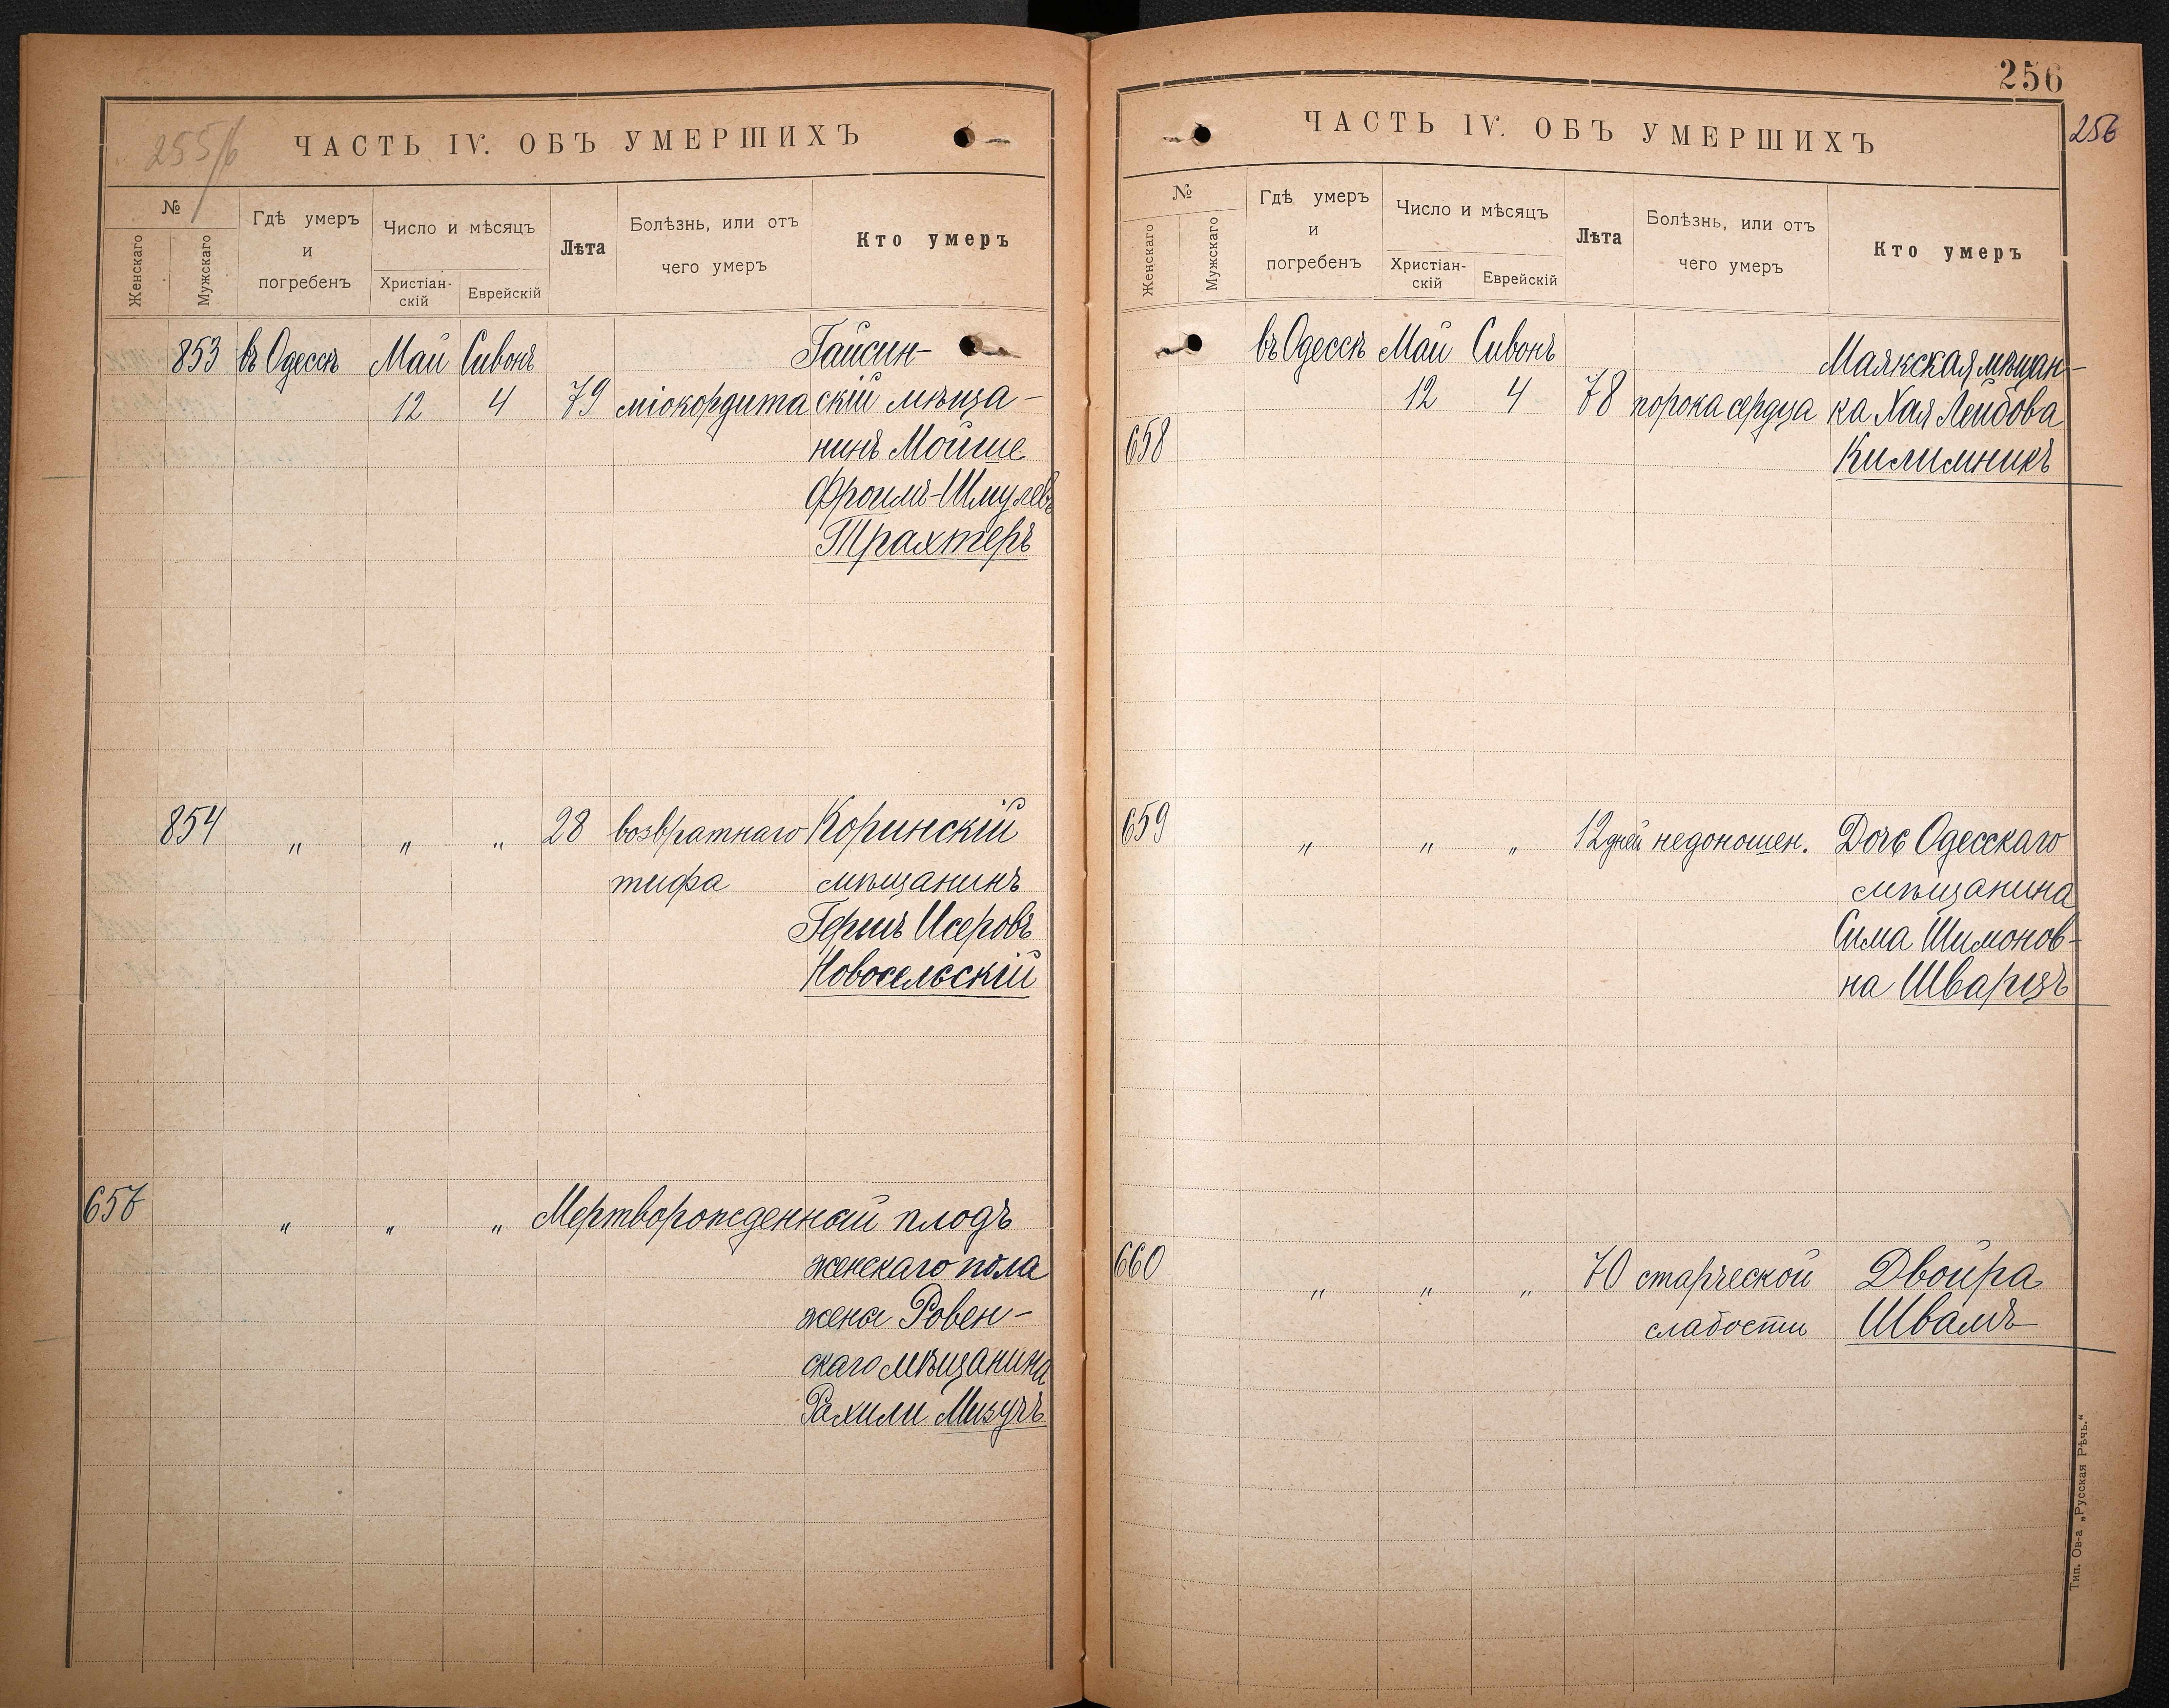 255/6
ЧАСТЬ IV. ОБЪ УМЕРШИХЪ
№
Женскаго
Мужскаго
Гдѣ умеръ
и
погребенъ
Число и мѣсяцъ
Христіан-
скій
Еврейскій
Лѣта
Болѣзнь, или отъ
чего умеръ
Кто умеръ
853 въ Одессѣ Май Сивонъ Гайсин-
12 4 79 міокордита скій мѣща-
нинъ Мойше
Фроимъ-Шмулевъ
Трахтеръ
854 " " " 28 возвратнаго Коринскій
тифа мѣщанинъ
Гершъ Исеровъ
Новосельскій
657 " " " Мертворожденный плодъ
женскаго пола
жены Ровен-
скаго мѣщанина
Рахили Мизучъ
256
256
ЧАСТЬ IV. ОБЪ УМЕРШИХЪ
№
Женскаго
Мужскаго
Гдѣ умеръ
и
погребенъ
Число и мѣсяцъ
Христіан-
скій
Еврейскій
Лѣта
Болѣзнь, или отъ
чего умеръ
Кто умеръ
въ Одессѣ Май Сивонъ Маякская мѣщан-
12 4 78 порока сердца ка Хая Лейбова
658 Килимникъ
659 " " " 12 дней недоношен. Дочь Одесскаго
мѣщанина
Сима Шимонов-
на Шварцъ
660 " " " 70 старческой Двойра
слабости Швамъ
Тип. Ов-а „Русская Рѣчь.“